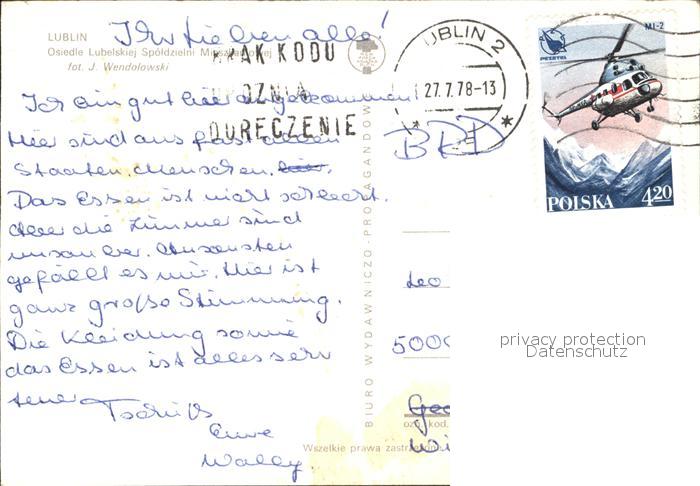 Ihr Lieben alle!
LUBLIN
Osiedle Lubelskiej Spółdzielni Mieszkaniowej
fot. J. Wendołowski
BRAK KODU
OPÓŹNIA
DORĘCZENIE
LUBLIN 2
27.7.78-13
MI-2
PEZETEL
POLSKA 4.20
BRD
Ich bin gut hier angekommen
Hier sind aus fast allen
Staaten Menschen. hier.
Das Essen ist nicht schlecht.
Aber die Zimmer sind
unsauber. Ansonsten
gefällt es mir. Hier ist
ganz große Stimmung.
Die Kleidung sowie
das Essen ist alles sehr
teuer Tschüß
Eure
Wally.
BIURO WYDAWNICZO-PROPAGANDOW
Leo
5000
privacy protection
Datenschutz
Wszelkie prawa zastrzeżone